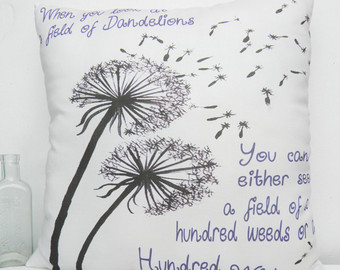 When you look at
field of Dandelions
You can
either see
a field of a
hundred weeds or
Hundred